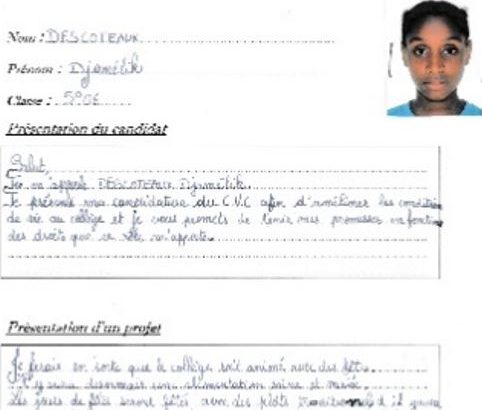 Nom : DESCOTEAUX
Prénom : Djamélik
Classe : 5°06
Présentation du candidat
Salut,
Je m'appele DESCOTEAUX Djamélik.
Je présente ma candidature du C.V.C afin d'améliorer les condition
de vie au collège et je vous promets de tenir mes promesses en fonction
des droits que ce rôle m'apporte.
Présentation d'un projet
Je ferais en sorte que le collège soit animé avec des fêtes.
Il y aura désormais une alimentation saine et variée.
Les jours de fêtes seront fêtés avec des plats traditionnels et il y aura